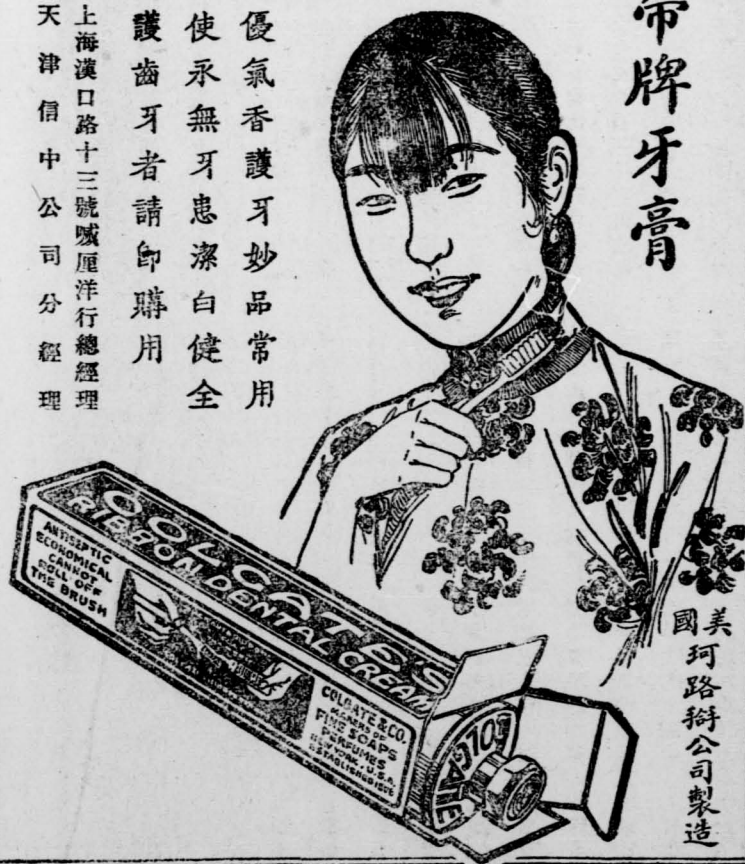 帶牌牙膏
優氣香護牙妙品常用
使永無牙患潔白健全
護齒牙者請卽購用
上海漢口路十三號喴厘洋行總經理
天津信中公司分經理
美國珂路搿公司製造
COLGATE'S
RIBBON DENTAL CREAM
ANTISEPTIC
ECONOMICAL
CANNOT
ROLL OFF
THE BRUSH
COLGATE & CO.
MAKERS OF
FINE SOAPS
PERFUMES
NEW YORK, U.S.A.
ESTABLISHED 1806
COLGATE